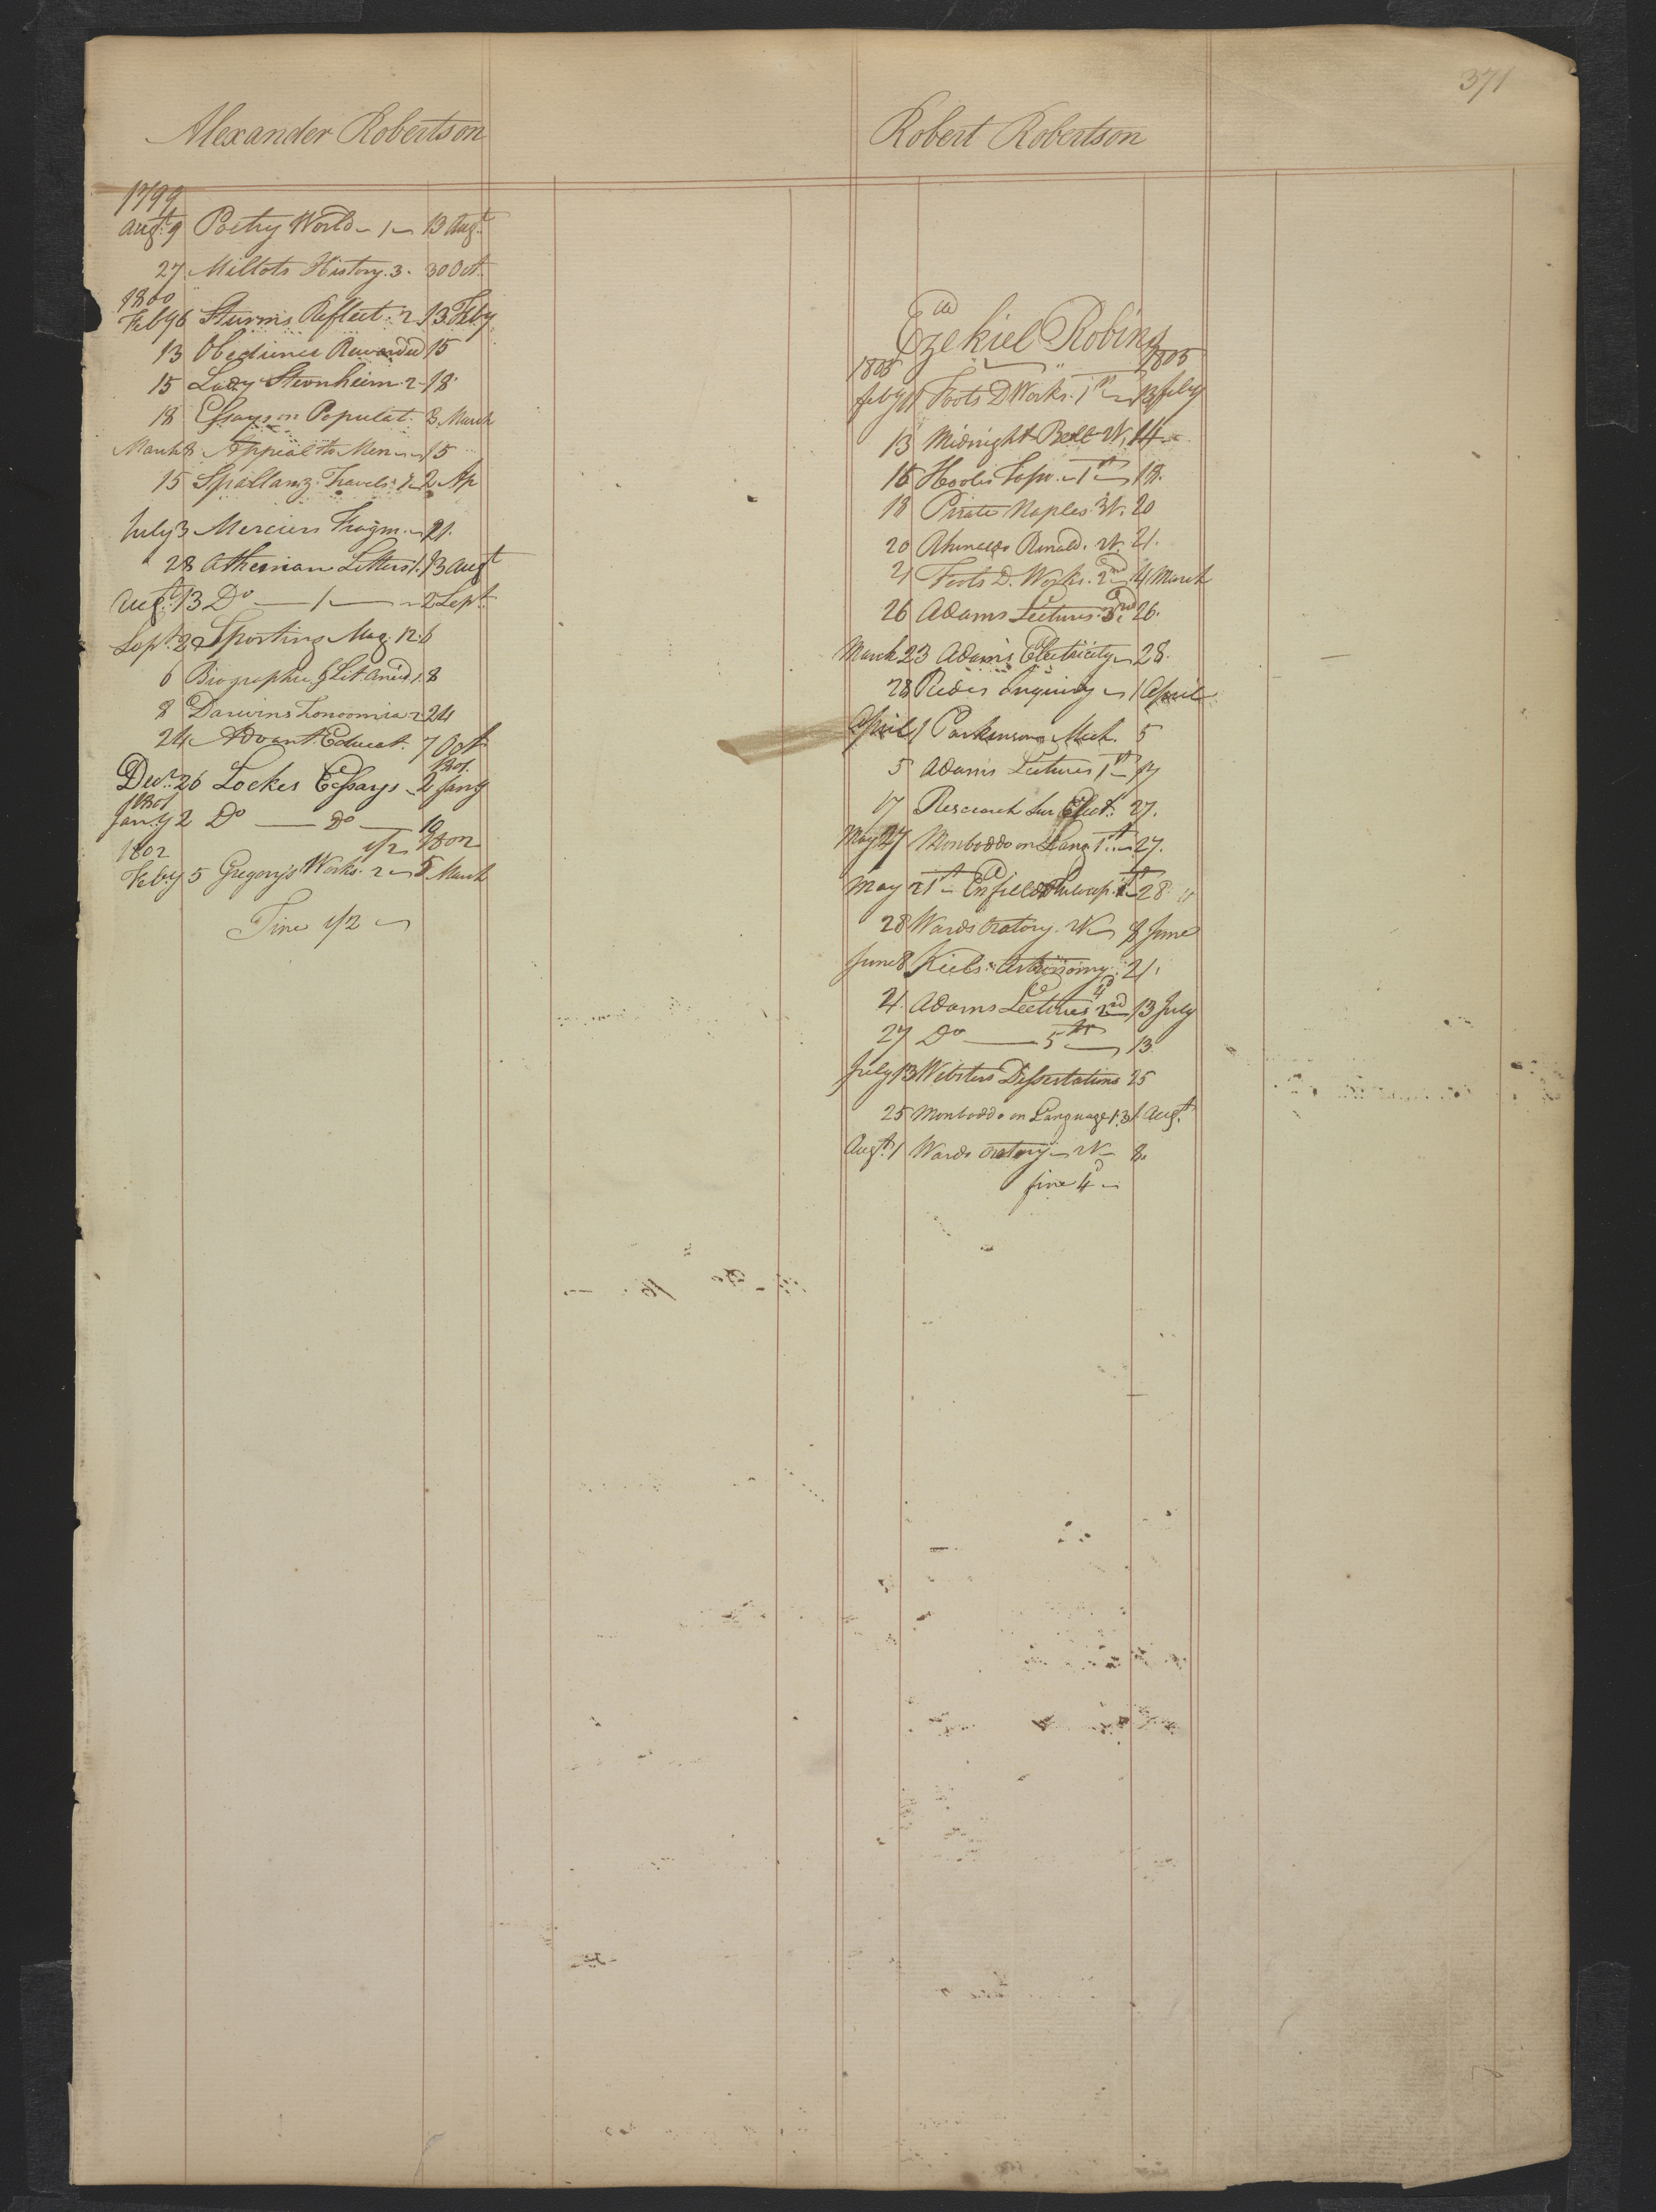 371
Alexander Robertson
1799
Augt. 9 Poetry World 1 13 Augt.
27 Millots History. 3. 30 Oct.
1800
Feby 6 Sturms Reflect. 2 13 Feby
13 Obedience Rewarded 15
15 Lady Sternheim. 2 18
18 Essays on Populat. 3 March
March 3 Appeal to Men 15
15 Spallanz. Travels. 2 Ap
July 3 Merciers Fragm. 21.
28 Athenian Letters 1. 13 Augt
Augt. 13 Do 1 2 Sept.
Sept. 2 Sporting Mag. 12. 6
6 Biographic. & Lit Anecd. 1. 8
8 Darwins Zoonomia 2 24
24 Advant Educat. 7 Oct
1801.
Decr. 26 Lockes Essays 2 Jany
1801
Jany 2 Do Do 19
1802 1/2 1802
Feby 5 Gregory's Works. 2 5 March
Fine 1/2
Robert Robertson
Ezekiel Robins
1805 1805
feby 11 Foots D Works. 1st 13 feby
13 Midnight Bell 14
16 Hools Taso. 1st 18.
18 Pirate Naples. 20
20 Rinald. 21.
21 Foots D. Works. 2nd 4 March
26 Adams Lectures. 3rd 26.
March 23 Adams Electricity 28.
28 Inquiry 1 April
April 1 Parkinsons Mech. 5
5 Adams Lectures 1st 17
17 Research Sur Elect. 27.
May 27 Monboddo on Lang 1st 27.
May 21st Enfields Philosop. 1st 28.
28 Wards Oratory. 8 June
June 8 Kiels Astronomy 21.
21. Adams Lectures 2nd 4 13 July
27 Do 5th 13
July 13 Websters Dissertations 25
25 Monboddo on Language 1.3 1 Augt.
Augt. 1 Wards Oratory 8.
fine 4d